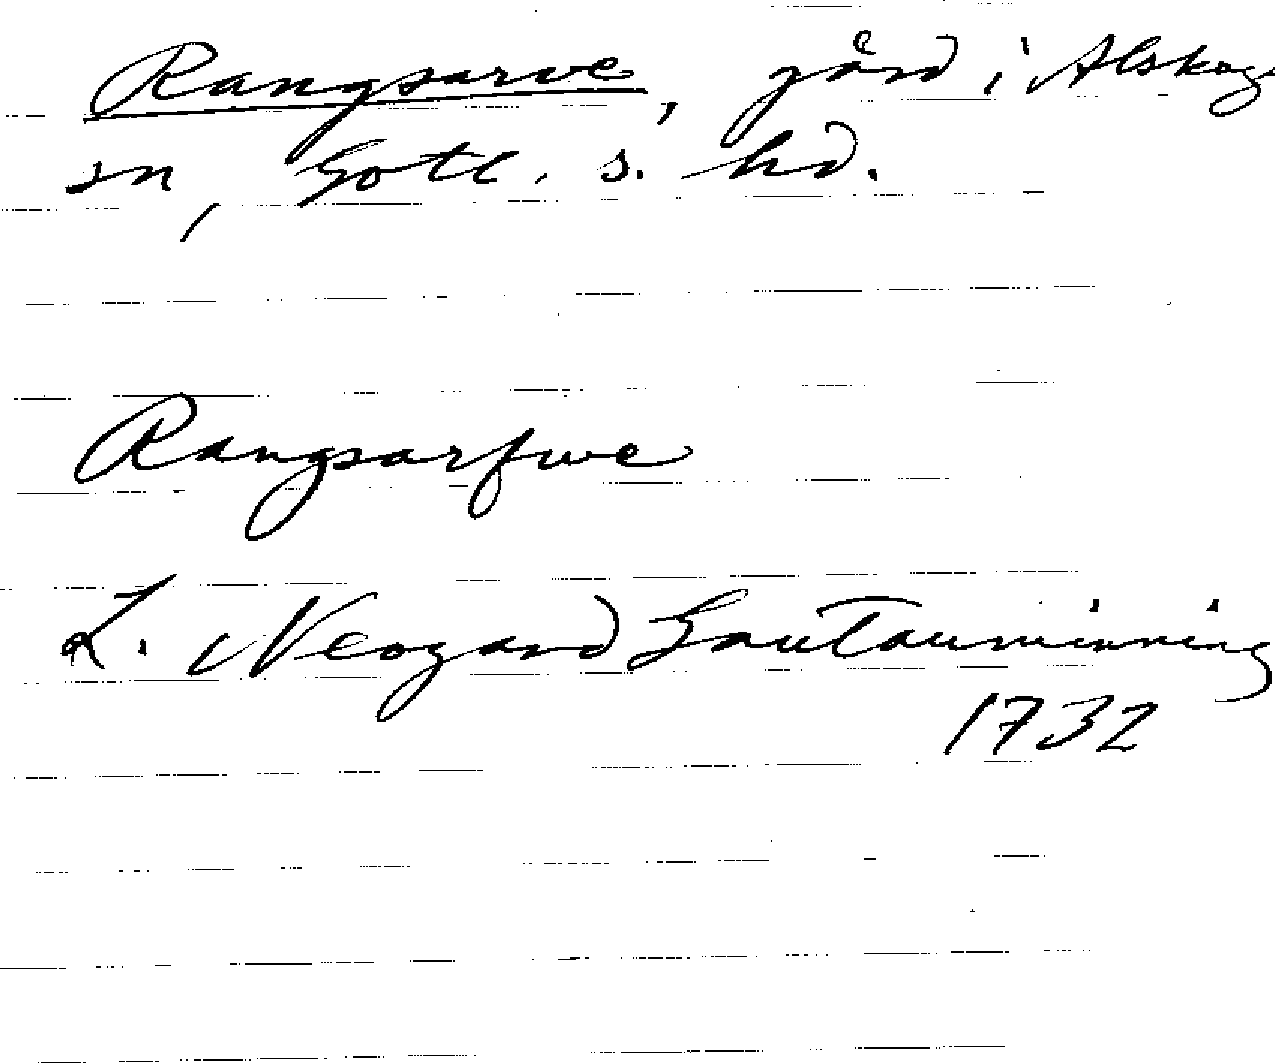 Rangsarve, gård i Alskog
sn, Gotl. s. hd.
Rangsarfwe
L. Neogard Gautauminning
1732